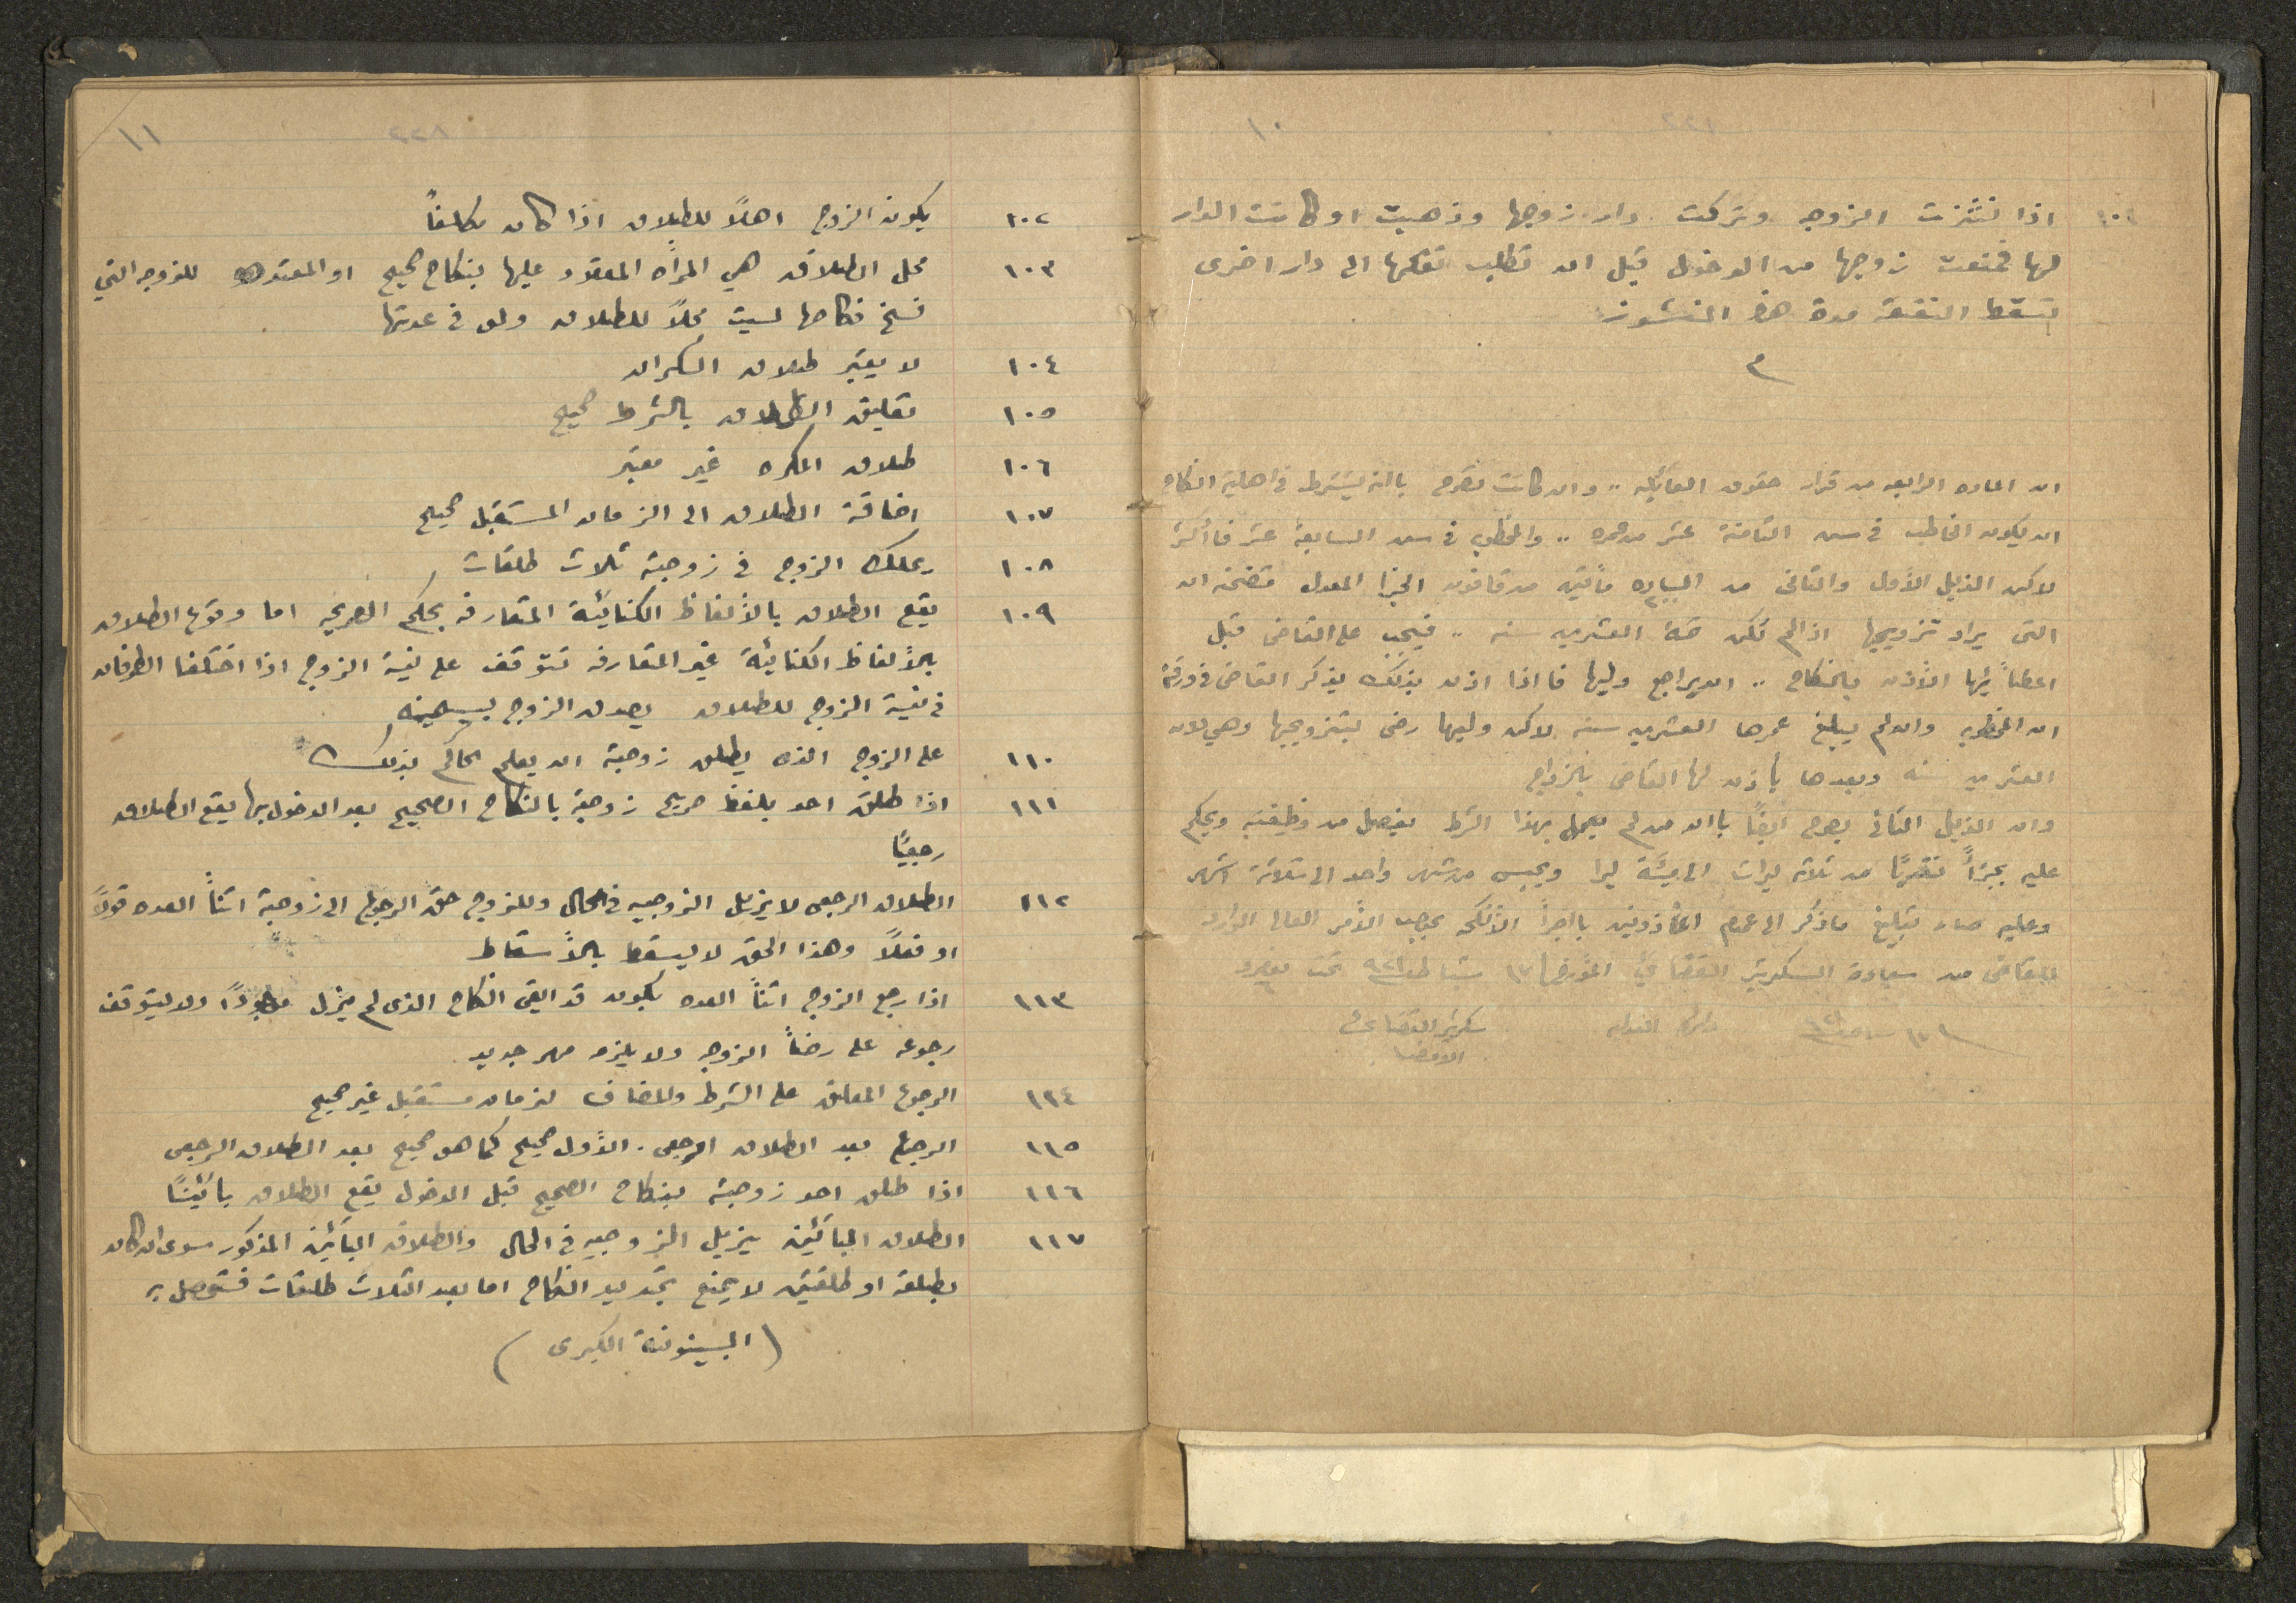 ١٠
١٠١ اذا نشزت الزوجه وتركت دار زوجها وذهبت او كانت الدار
لها فمنعت زوجها من الدخول قبل ان تطلب نقلها الى دار اخرى
تسقط النفقة مدة هذا النشوز
م
ان الماده الرابعه من قرار حقوق العائله .. وان كانت تصرح بانه يشترط في اهلية النكاح
ان يكون الخاطب في سن الثامنة عشر من عمره .. والمخطوبه في سن السابعة عشر فاأكثر
لاكن الذيل الأول والثاني من الماده مأتين من قانون الجزا المعدل متضمنه ان
التى يراد تزويجها اذا لم تكن تمة العشرين سنه .. فيجب على القاضى قبل
اعطأئها الأذن بالنكاح .. ان يراجع وليها فااذا اذن بذلك يذكر القاضى في ورقة
ان المخطوبه وان لم يبلغ عمرها العشرين سنه لاكن وليها رضى بتزويجها وهي دون
العشرين سنه وبعدها يأذن لها القاضى بالزواج
وان الذيل الثانى يصرح ايضًا باان من لم يعمل بهذا الشرط يفصل من وظيفته ويحكم
عليه بجزأً نقديًا من ثلاثه ليرات الى مئة ليرا ويحبس من شهر واحد الى ثلاثة اشهر
وعليه صار تبليغ ماذكر الى عموم المأذونين بااجرأ الأنكحه بموجب الأمر العالى الوارد
للقاضى من سعادة السكرتير القضائي المؤرخ ١٧ شباط ٩٢١ تحت
سكرتير القضائى
الامضا
١١
٢٢٨
١٠٢ يكون الزوج اهلاً للطلاق اذا كان مكلفاً
١٠٣ محل الطلاق هي المرأه المعقود عليها بنكاح صحيح او المعتده للزوجه التي
فسخ نكاحها ليست محلاً للطلاق ولو في عدتها
١٠٤ لا يعتبر طلاق السكران
١٠٥ تعليق الطلاق بالشرط صحيح
١٠٦ طلاق المكره غير معتبر
١٠٧ اضافة الطلاق الى الزمان المستقبل صحيح
١٠٨ يملك الزوج في زوجته ثلاث طلقات
١٠٩ يقع الطلاق بالألفاظ الكنائية المتعارفه بحكم الصريحه اما وقوع الطلاق
بالألفاظ الكنائية غير المتعارفه تتوقف على نية الزوج اذا اختلفا الطرفان
في نية الزوج للطلاق يصدق الزوج بيمينه
١١٠ على الزوج الذى يطلق زوجته ان يعلم الحاكم بذلك
١١١ اذا طلق احد بلفظ صريح زوجته بالنكاح الصحيح بعد الدخول بها يقع الطلاق
رجعيًا
١١٢ الطلاق الرجعى لا يزيل الزوجيه في الحال وللزوج حق الرجوع الى زوجته اثنأ العده قولاً
او فعلاً وهذا الحق لا يسقط بالأسقاط
١١٣ اذا رجع الزوج اثنأ العده يكون قد ابقى النكاح الذى لم يزل موجودًا ولا يتوقف
رجوعه على رضأ الزوجه ولا يلزمه مهر جديد
١١٤ الرجوع المعلق على الشرط والمضاف لزمان مستقبل غير صحيح
١١٥ الرجوع بعد الطلاق الرجعى . الأول صحيح كما هو صحيح بعد الطلاق الرجعى
١١٦ اذا طلق احد زوجته بنكاح الصحيح قبل الدخول يقع الطلاق بأئنًا
١١٧ الطلاق البأئن يزيل الزوجيه في الحال والطلاق البأئن المذكور سوى ان كان
بطلقه او طلقتين لا يمنع تجديد النكاح اما بعد الثلاث طلقات فتحصل به
(البينونة الكبرى)